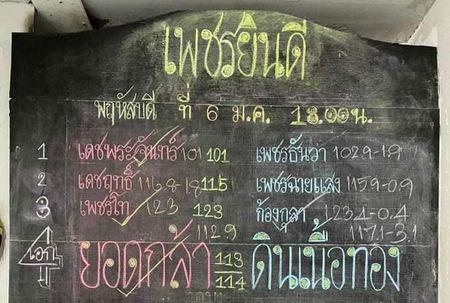 เพชรยินดี
พฤหัสบดี ที่ 6 ม.ค. 18.00น.
1 เดชพระจันทร์ 101 101 เพชรธันวา 102.9-1.9
2 เดชฤทธิ์ 116.8-1.8 115 เพชรฉายแสง 115.9-0.9
3 เพชรไท 123 123 ก้องกุลา 123.4-0.4
112.9 117.1-3.1
เอก ยอดกล้า 113 ดินเนื้อทอง
114